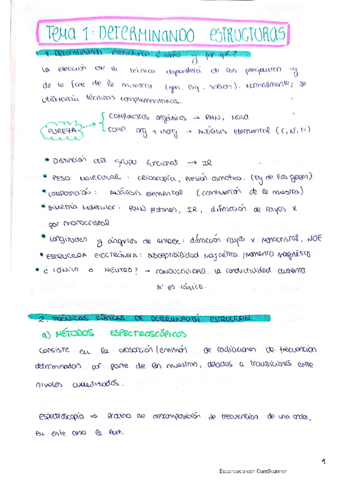 TEMA 1: DETERMINANDO ESTRUCTURAS
1. Determinando estructuras ¿cómo y por qué?
La elección de la técnica dependerá de las preguntas y
de la fase de la muestra (gas, líq., sólido). Normalmente, se
utilizarán técnicas complementarias.
PUREZA
Compuestos orgánicos → RMN,
Comp. org + inorg → Análisis elemental (C, N, H)
• Distinción del grupo funcional → IR
• Peso molecular: crioscopía, presión osmótica. (ley de los gases).
• Composición: Análisis elemental (combustión de la muestra)
• Simetría molecular: RMN protones, IR, difracción de rayos X
por monocristal
• Longitudes y ángulos de enlace: difracción rayos X monocristal, NOE
• Estructura electrónica: susceptibilidad magnética, momento magnético
• ¿Iónico o neutro? → conductividad. La conductividad aumenta
si es iónico.
2. TÉCNICAS FÍSICAS DE DETERMINACIÓN ESTRUCTURAL
a) MÉTODOS ESPECTROSCÓPICOS
Consiste en la absorción/emisión de radiaciones de frecuencia
determinadas por parte de las muestras, debidos a transiciones entre
niveles cuantizados.
Espectroscopía ⇒ Proceso de descomposición de frecuencias de una onda,
en este caso la luz.
1
Escaneado con CamScanner